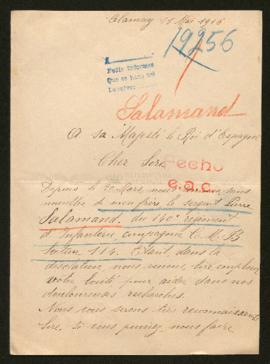 Clamecy 15 Mai 1916
19256
Pedir Informes
Que se haga
Salamand
A sa Majesté le Roi d'Espagne
Cher Sire
Fecho
e.a.c.
Depuis le 20 Mars nous sommes sans
nouvelles de mon frère le sergent Pierre
Salamand. du 140e régiment
d'Infanterie, compagnie C. M. B
secteur 114. Etant dans la
désolation, nous venons Sire implorer
votre bonté pour aider dans nos
douloureuses recherches.
Nous vous serons très reconnaissants
Sire, si vous pouviez nous faire